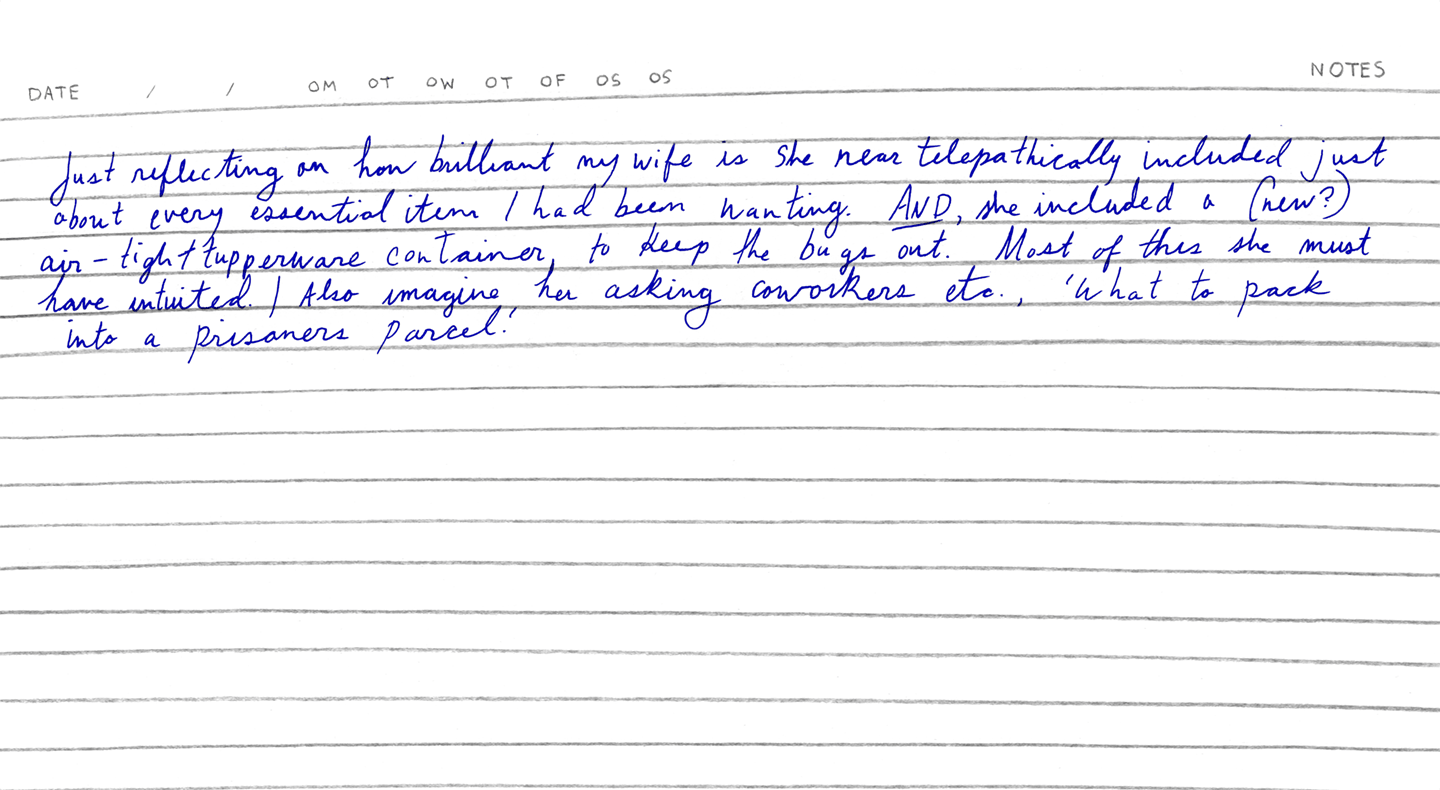 DATE / / OM OT OW OT OF OS OS NOTES
Just reflecting on how brilliant my wife is she near telepathically included just
about every essential item I had been wanting. AND, she included a (new?)
air-tight tupperware container, to keep the bugs out. Most of this she must
have intuited. I Also imagine, her asking coworkers etc., 'What to pack
into a prisoners parcel.'